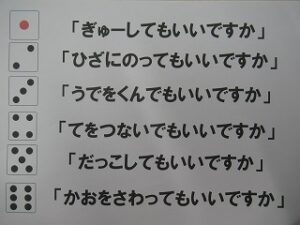 「ぎゅーしてもいいですか」
「ひざにのってもいいですか」
「うでをくんでもいいですか」
「てをつないでもいいですか」
「だっこしてもいいですか」
「かおをさわってもいいですか」